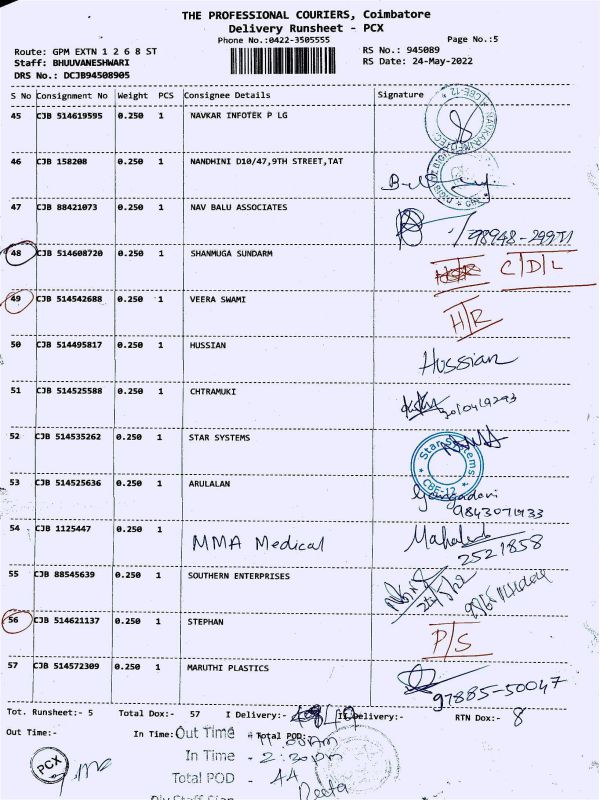 THE PROFESSIONAL COURIERS, Coimbatore
Delivery Runsheet - PCX
Phone No.:0422-3505555 Page No.:5
Route: GPM EXTN 1 2 6 8 ST RS No.: 945089
Staff: BHUUVANESHWARI RS Date: 24-May-2022
DRS No.: DCJB94508905
S No Consignment No Weight PCS Consignee Details Signature
45 CJB 514619595 0.250 1 NAVKAR INFOTEK P LG
46 CJB 158208 0.250 1 NANDHINI D10/47,9TH STREET,TAT
47 CJB 88421073 0.250 1 NAV BALU ASSOCIATES
48 CJB 514608720 0.250 1 SHANMUGA SUNDARM C/D/L
49 CJB 514542688 0.250 1 VEERA SWAMI H/R
50 CJB 514495817 0.250 1 HUSSIAN Hussian
51 CJB 514525588 0.250 1 CHTRAMUKI
52 CJB 514535262 0.250 1 STAR SYSTEMS Star Systems CBE-12
53 CJB 514525636 0.250 1 ARULALAN
54 CJB 1125447 0.250 1 MMA Medical
2521858
55 CJB 88545639 0.250 1 SOUTHERN ENTERPRISES
56 CJB 514621137 0.250 1 STEPHAN P/S
57 CJB 514572309 0.250 1 MARUTHI PLASTICS
97885-50047
Tot. Runsheet:- 5 Total Dox:- 57 I Delivery:- II Delivery:- RTN Dox:- 8
Out Time:- In Time:- Total POD:-
Out Time
In Time - 2:30pm
PCX
Total POD - 44